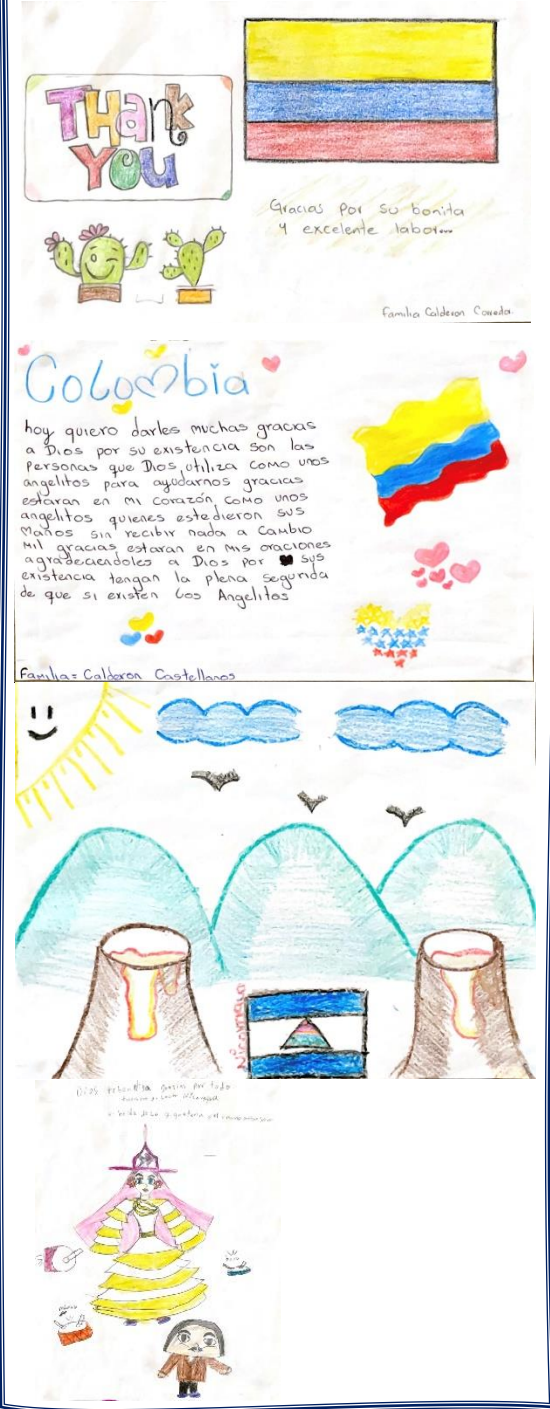 THank
You
Gracias por su bonita
y excelente labor...
Familia Calderon
Colombia
hoy quiero darles muchas gracias
a Dios por su existencia son las
personas que Dios utiliza como unos
angelitos para ayudarnos gracias
estaran en mi corazón como unos
angelitos quienes estedieron sus
manos sin recibir nada a cambio
Mil gracias estaran en mis oraciones
agradeciendoles a Dios por sus
existencia tengan la plena segurida
de que si existen los Angelitos
Familia= Calderon Castellanos
Nicaragua
Dios gracias por todo